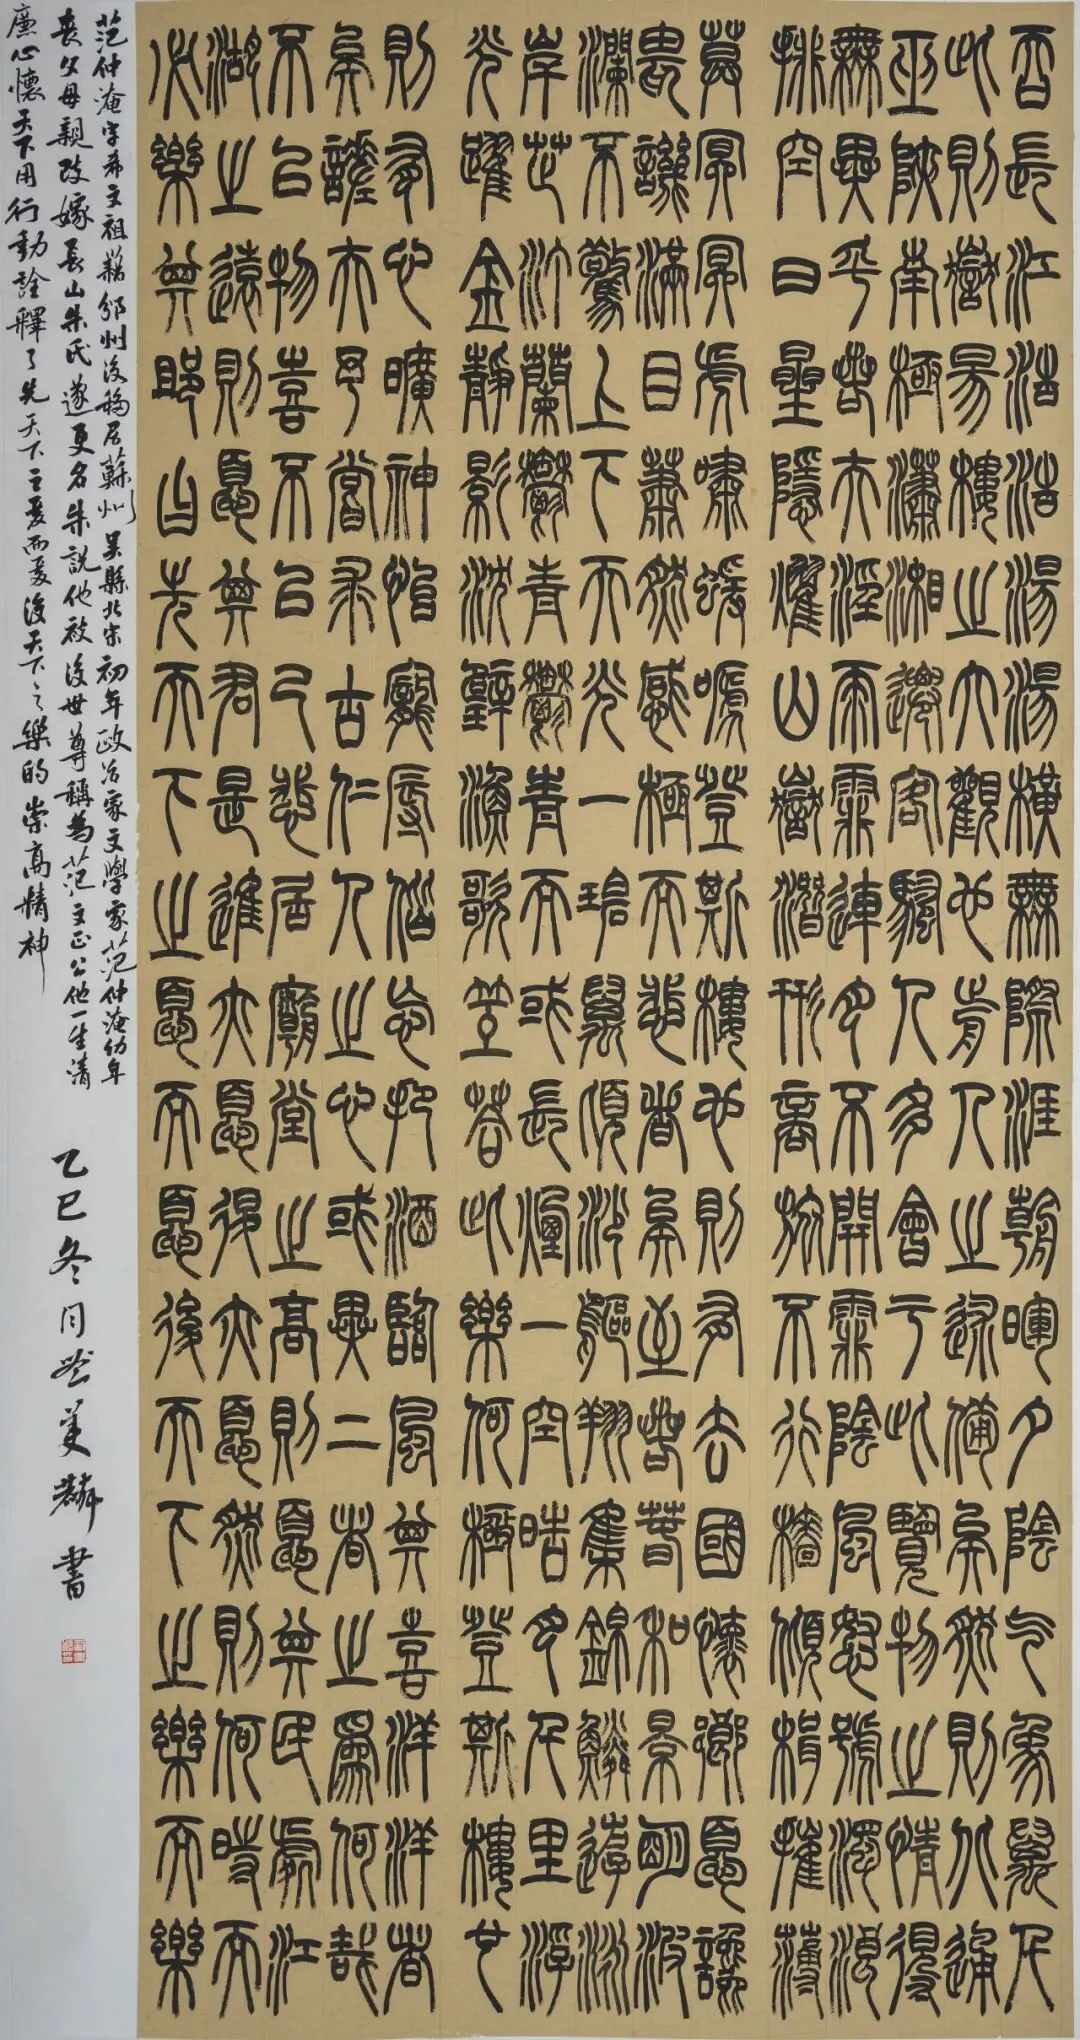 吞長江浩浩湯湯橫無際涯朝暉夕陰气象萬千
此則嶽陽樓之大觀也前人之述備矣然則北通
巫峽南極瀟湘遷客騷人多會于此覽物之情得
無異乎若夫淫雨霏連月不開霏陰風怒號濁浪
排空日星隱燿山嶽潛形商旅不行檣傾楫摧薄
暮冥冥虎嘯猿啼登斯樓也則有去國懷鄉憂讒
畏譏滿目蕭然感極而悲者矣至若春和景明波
瀾不驚上下天光一碧萬頃沙鷗翔集錦鱗游泳
岸芷汀蘭鬱青鬱青而或長煙一空皓月千里浮
光躍金靜影沈璧漁歌互答此樂何極登斯樓也
則有心曠神怡寵辱偕忘把酒臨風其喜洋洋者
矣嗟夫予嘗求古仁人之心或異二者之為何哉
不以物喜不以己悲居廟堂之高則憂其民處江
湖之遠則憂其君是進亦憂退亦憂然則何時而
必樂其耶曰先天下之憂而憂後天下之樂而樂
范仲淹字希文祖籍邠州後移居蘇州吳縣北宋初年政治家文學家范仲淹幼年
喪父母親改嫁長山朱氏遂更名朱説他被後世尊稱為范文正公他一生清
廉心懷天下用行動詮釋了先天下之憂而憂後天下之樂的崇高精神
乙巳冬月美麟書